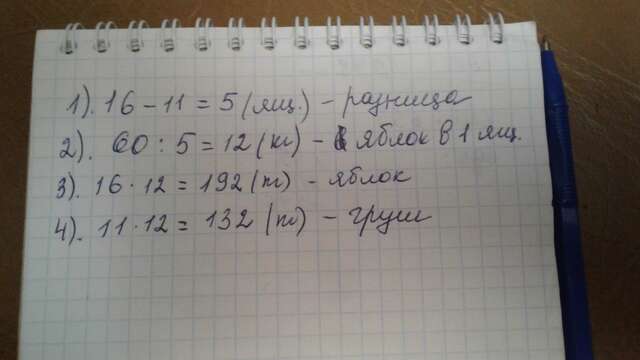 1). 16 - 11 = 5 (ящ.) - разница
2). 60 : 5 = 12 (кг) - яблок в 1 ящ.
3). 16 · 12 = 192 (кг) - яблок
4). 11 · 12 = 132 (кг) - груш